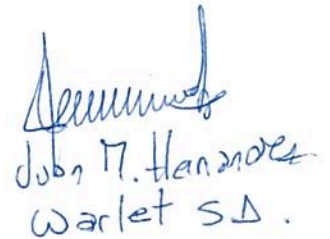 Juan M. Hernandez
Warlet S.A.